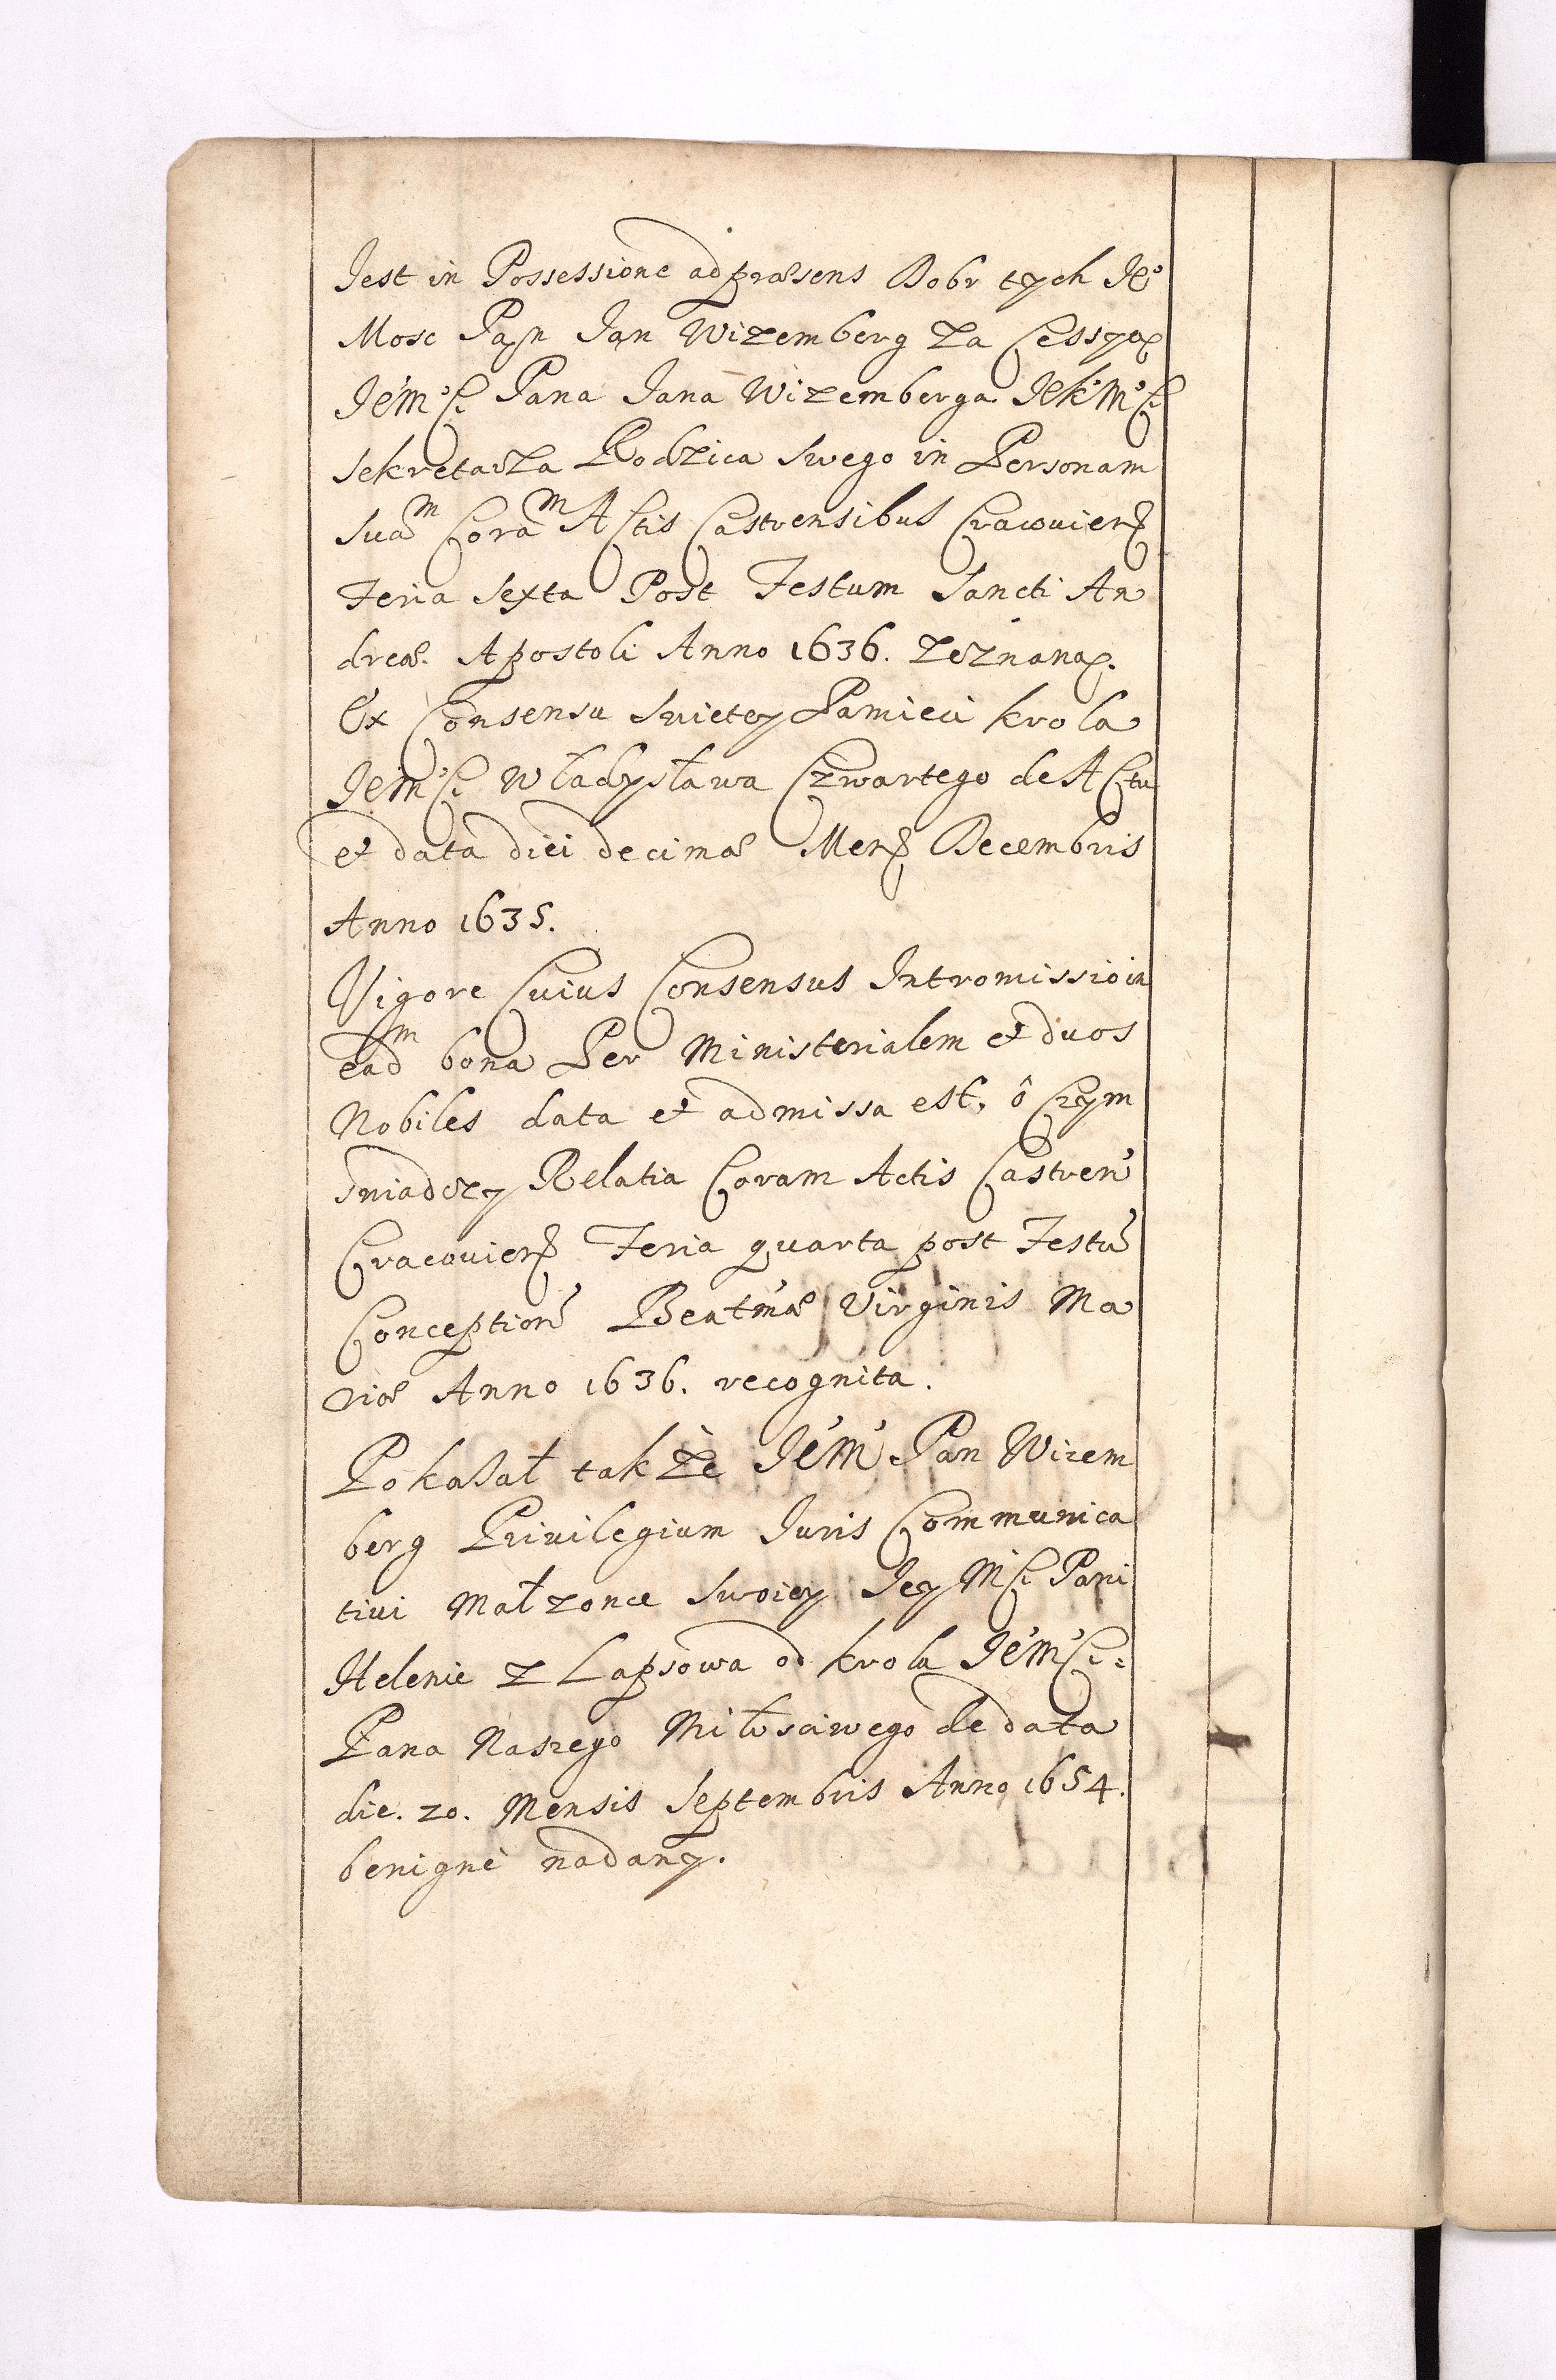 Jest in Possessione ad præsens Dobr tych Je⁰
Mosc Pąn Jąn Wizemberg za Cessyą
Jemᵒści Pana Jana Wizemberga JeKMᵒści
Sekretarza Rodzica Swego in Personam
Suam Coram Actis Castrensibus Cracouien̄
Feria Sexta Post Festum Sancti An
dreæ. Apostoli Anno 1636. zeznaną.
Ex Consensu Swietey Pamieci krola
Jemᵒści Władysława Czwartego de Actu
et data diei decimæ Men̄ Decembris
Anno 1635.
Vigore Cuius Consensus Intromissio in
eadm bona Per Ministerialem et duos
Nobiles data et admissa est, ô Czym
Swiadczy Relatia Coram Actis Castren̄
Cracouien̄ Feria quarta post Festū
Conception̄ Beatmæ Virginis Ma
riæ Anno 1636. recognita.
Pokasał takze Je͛m͛ Pan Wizem
berg Priuilegium Juris Communica
tiui Małzonce Swoiey Jey Mści Pani
Helenie z Lapsowa od krola Je͛m͛ści:
Pana Naszego Miłosciwego de data
die. 20. Mensis Septembris Anno 1654.
benignè nadany.